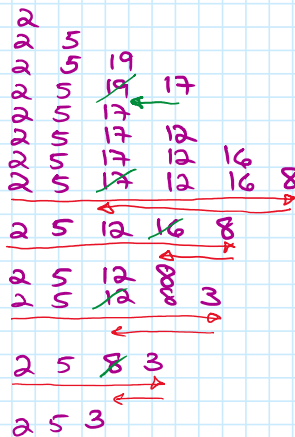 2
2 5
2 5 19
2 5 19 17
2 5 17
2 5 17 12
2 5 17 12 16
2 5 17 12 16 8
2 5 12 16 8
2 5 12 8
2 5 12 8 3
2 5 8 3
2 5 3